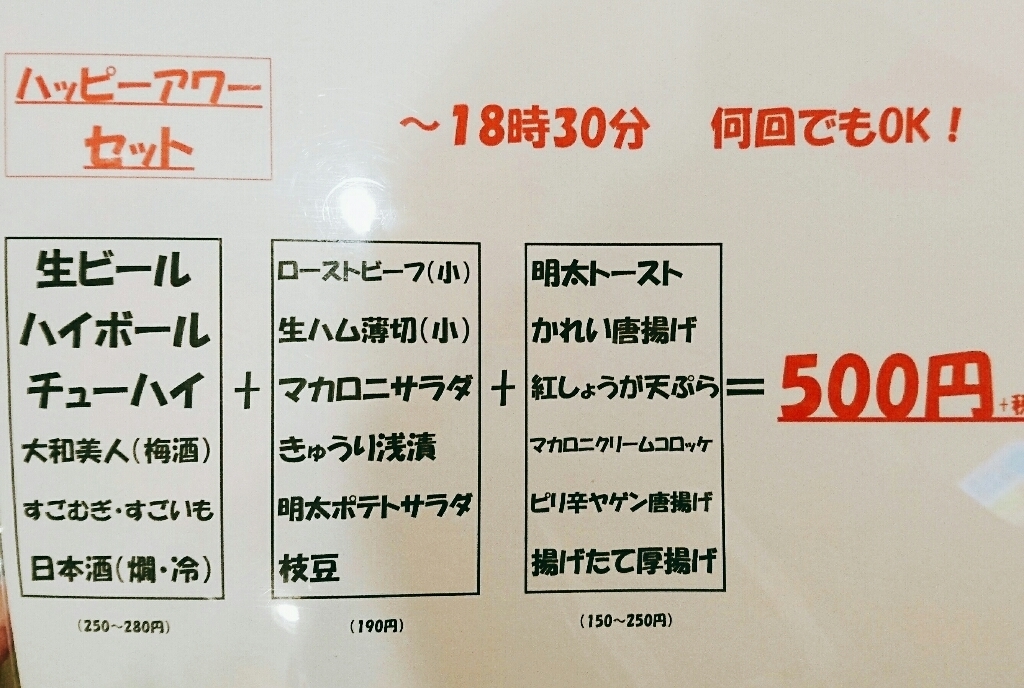 ハッピーアワー
セット
～18時30分 何回でもOK！
生ビール
ハイボール
チューハイ
大和美人(梅酒)
すごむぎ・すごいも
日本酒(燗・冷)
(250～280円)
+
ローストビーフ(小)
生ハム薄切(小)
マカロニサラダ
きゅうり浅漬
明太ポテトサラダ
枝豆
(190円)
+
明太トースト
かれい唐揚げ
紅しょうが天ぷら
マカロニクリームコロッケ
ピリ辛ヤゲン唐揚げ
揚げたて厚揚げ
(150～250円)
=
500円+税